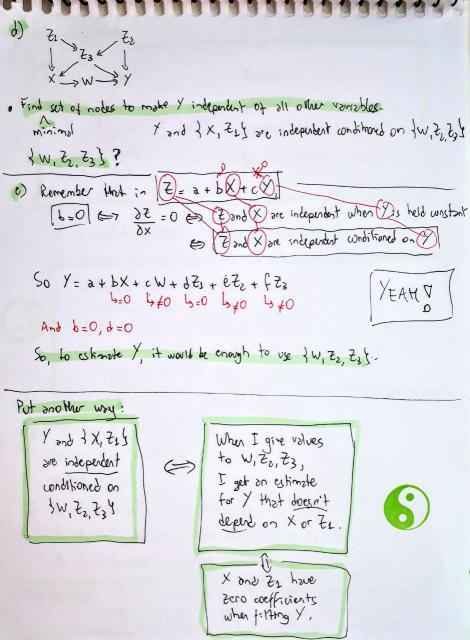 d)
Z₁ Z₂
Z₃
X → W → Y
• Find set of nodes to make Y independent of all other variables.
minimal
Y and {X, Z₁} are independent conditioned on {W, Z₂, Z₃}
{W, Z₂, Z₃} ?
e) Remember that in Z = a + bX + cY
b=0 ⟺ ∂Z/∂X = 0 ⟺ Z and X are independent when Y is held constant
⟺ Z and X are independent conditioned on Y
So Y = a + bX + cW + dZ₁ + eZ₂ + fZ₃
↳=0 ↳≠0 ↳=0 ↳≠0 ↳≠0
YEAH!
And b=0, d=0
So, to estimate Y, it would be enough to use {W, Z₂, Z₃}.
Put another way:
Y and {X, Z₁}
are independent
conditioned on
{W, Z₂, Z₃}
⟺
When I give values
to W, Z₂, Z₃,
I get an estimate
for Y that doesn't
depend on X or Z₁.
⇕
X and Z₁ have
zero coefficients
when fitting Y.